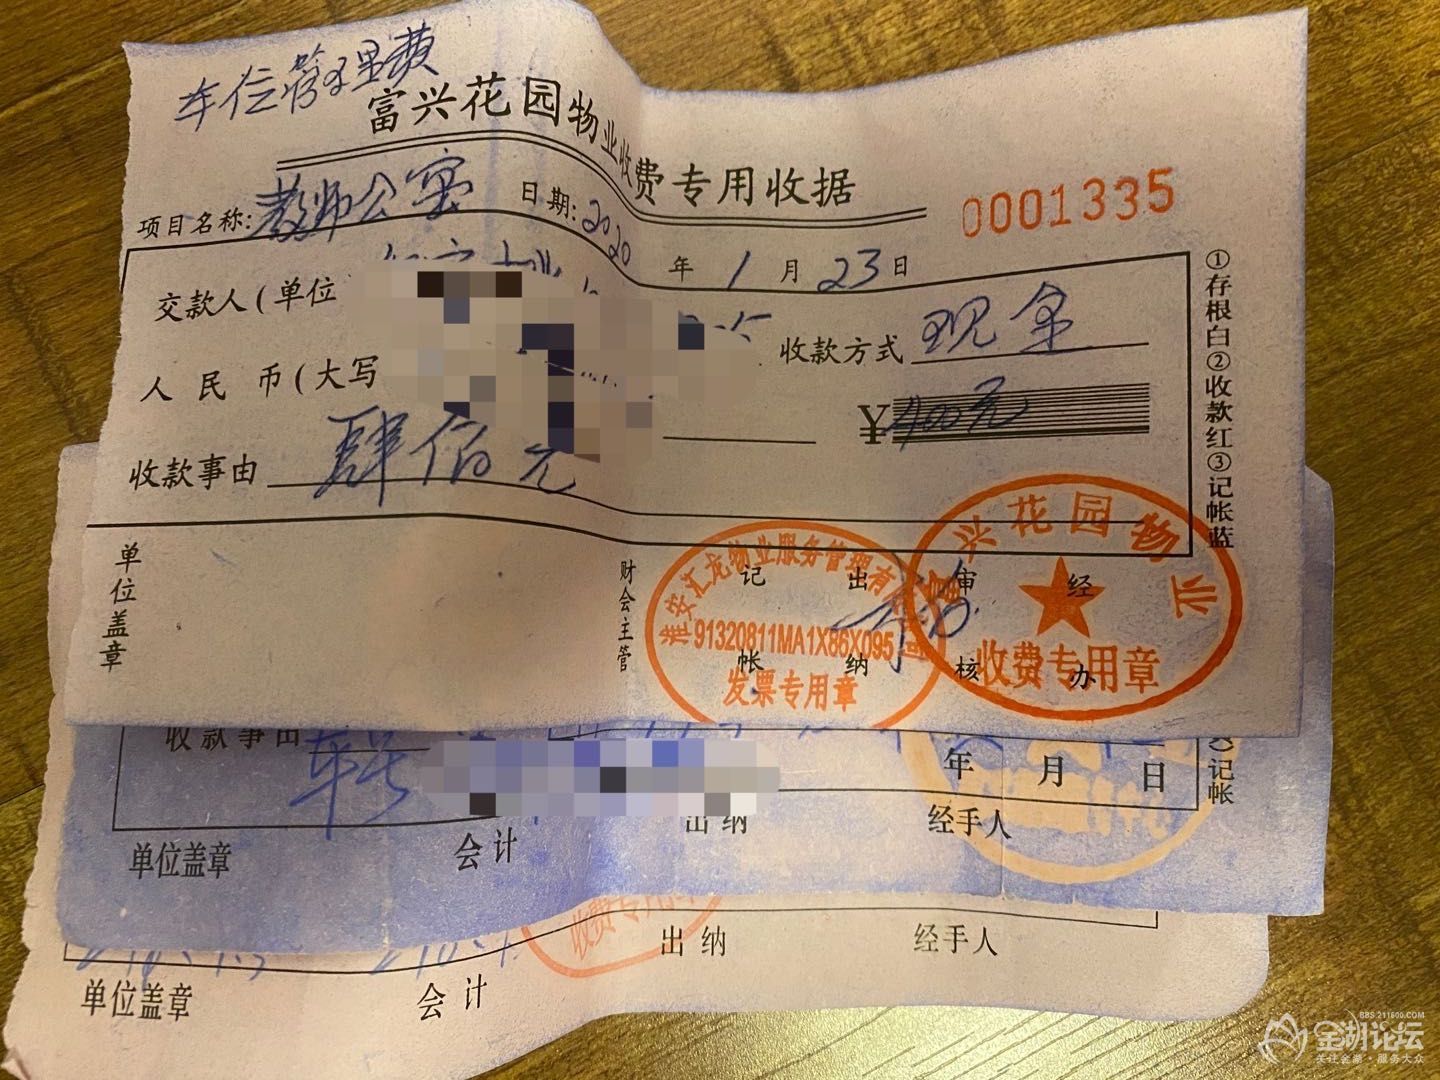 车位管理费
富兴花园物业收费专用收据
项目名称: 教师公寓 日期: 2020 年 1 月 23 日
0001335
交款人(单位
收款方式 现金
人民币(大写
¥ 400元
收款事由 肆佰元
①存根白②收款红③记帐蓝
单位盖章
财会主管
记帐
出纳
审核
经办
淮安汇龙物业服务管理有
91320811MA1X86X095
发票专用章
兴花园物业
收费专用章
收款事由
年 月 日
记帐
单位盖章 会计 出纳 经手人
收费专用
单位盖章 会计 出纳 经手人
BBS.211600.COM
金湖论坛
关注金湖·服务大众